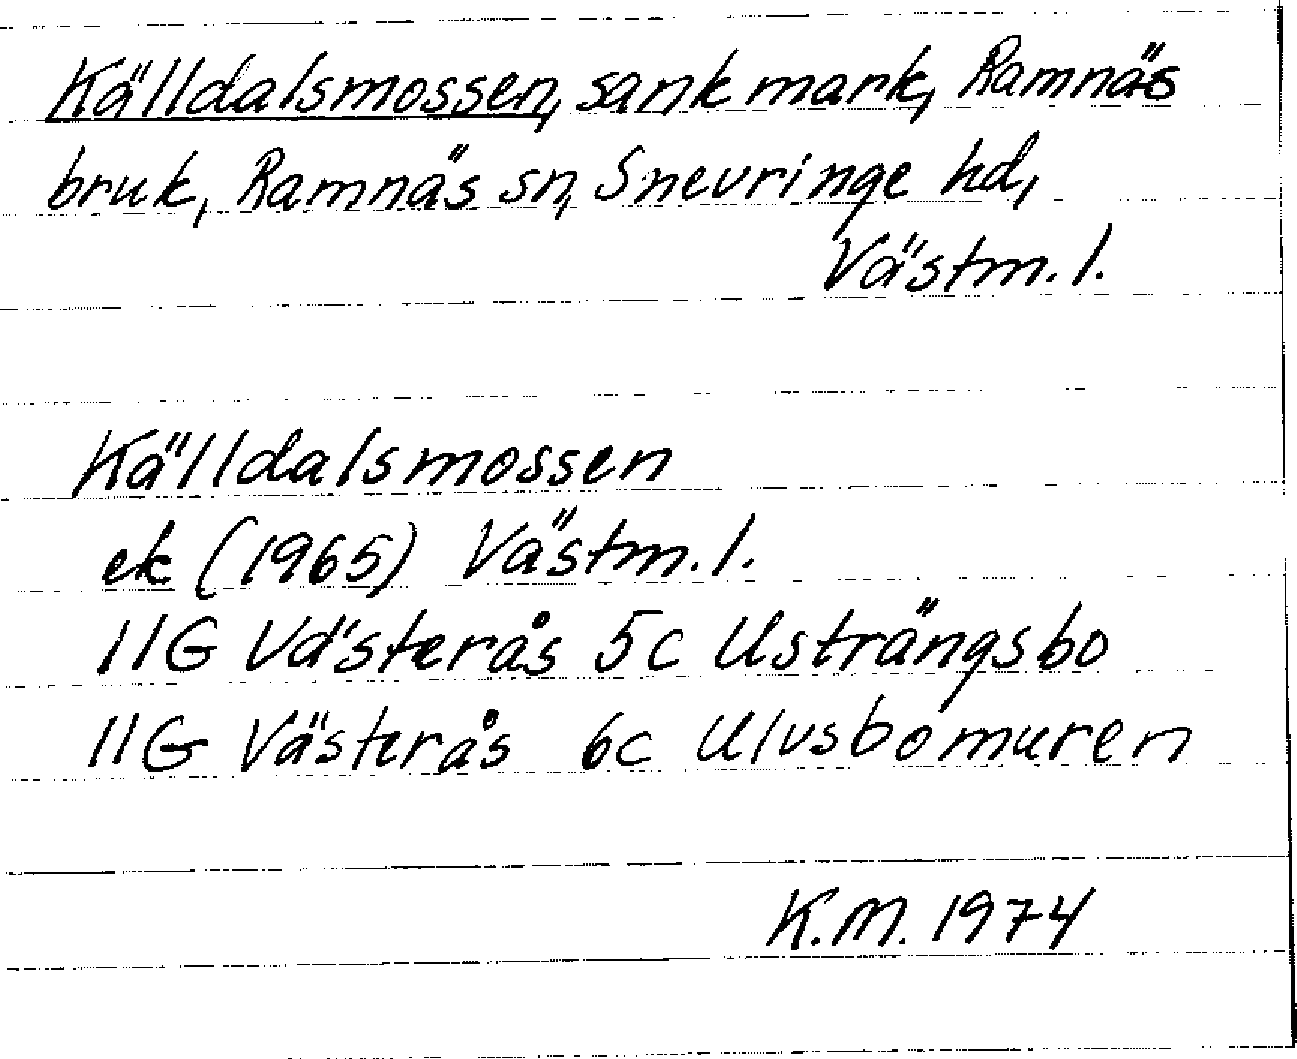 Källdalsmossen, sank mark, Ramnäs
bruk, Ramnäs sn, Snevringe hd,
Västm. l.
Källdalsmossen
ek (1965) Västm. l.
11G Västerås 5c Usträngsbo
11G Västerås 6c Ulvsbomuren
K.M. 1974